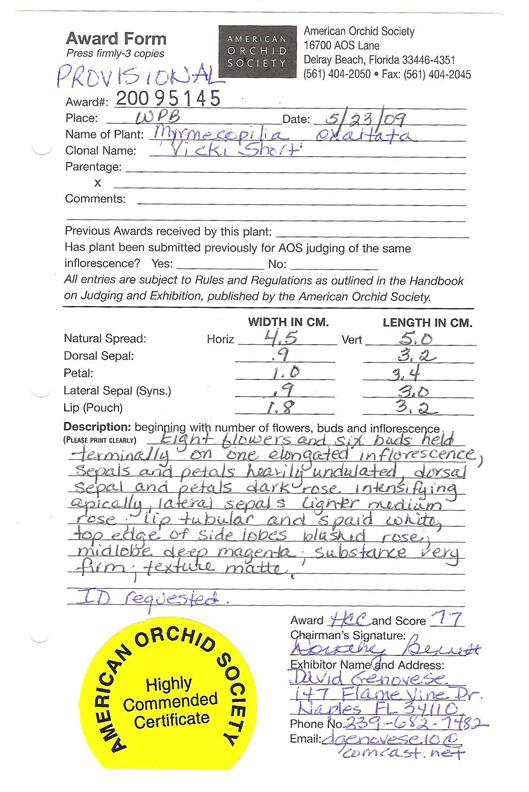 Award Form
Press firmly-3 copies
AMERICAN
ORCHID
SOCIETY
American Orchid Society
16700 AOS Lane
Delray Beach, Florida 33446-4351
(561) 404-2050 • Fax: (561) 404-2045
PROVISIONAL
Award#: 20095145
Place: WPB Date: 5/23/09
Name of Plant: Myrmecopilia oxaltata
Clonal Name: Vicki Short
Parentage:
x
Comments:
Previous Awards received by this plant:
Has plant been submitted previously for AOS judging of the same
inflorescence? Yes: No:
All entries are subject to Rules and Regulations as outlined in the Handbook
on Judging and Exhibition, published by the American Orchid Society.
WIDTH IN CM. LENGTH IN CM.
Natural Spread: Horiz 4.5 Vert 5.0
Dorsal Sepal: .9 3.2
Petal: 1.0 3.4
Lateral Sepal (Syns.) .9 3.0
Lip (Pouch) 1.8 3.2
Description: beginning with number of flowers, buds and inflorescence
(PLEASE PRINT CLEARLY) Eight flowers and six buds held
terminally on one elongated inflorescence,
sepals and petals heavily undulated, dorsal
sepal and petals dark rose intensifying
apically, lateral sepals lighter medium
rose; lip tubular and spaid white,
top edge of side lobes blushed rose,
midlobe deep magenta; substance very
firm; texture matte.
ID requested.
AMERICAN ORCHID SOCIETY
Highly
Commended
Certificate
Award HCC and Score 77
Chairman's Signature:
Dorothy Bennett
Exhibitor Name and Address:
David Genovese
147 Flame Vine Dr.
Naples FL 34110
Phone No. 239-682-7482
Email: dgenovese10@
comcast.net